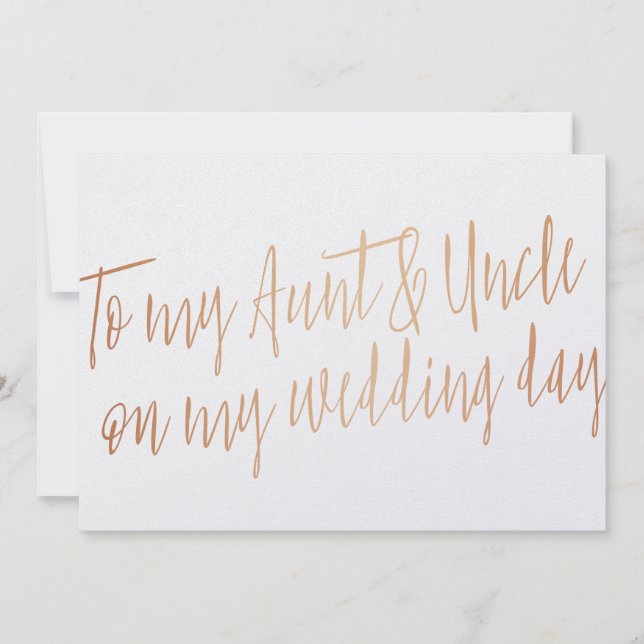 To my Aunt & Uncle
on my wedding day